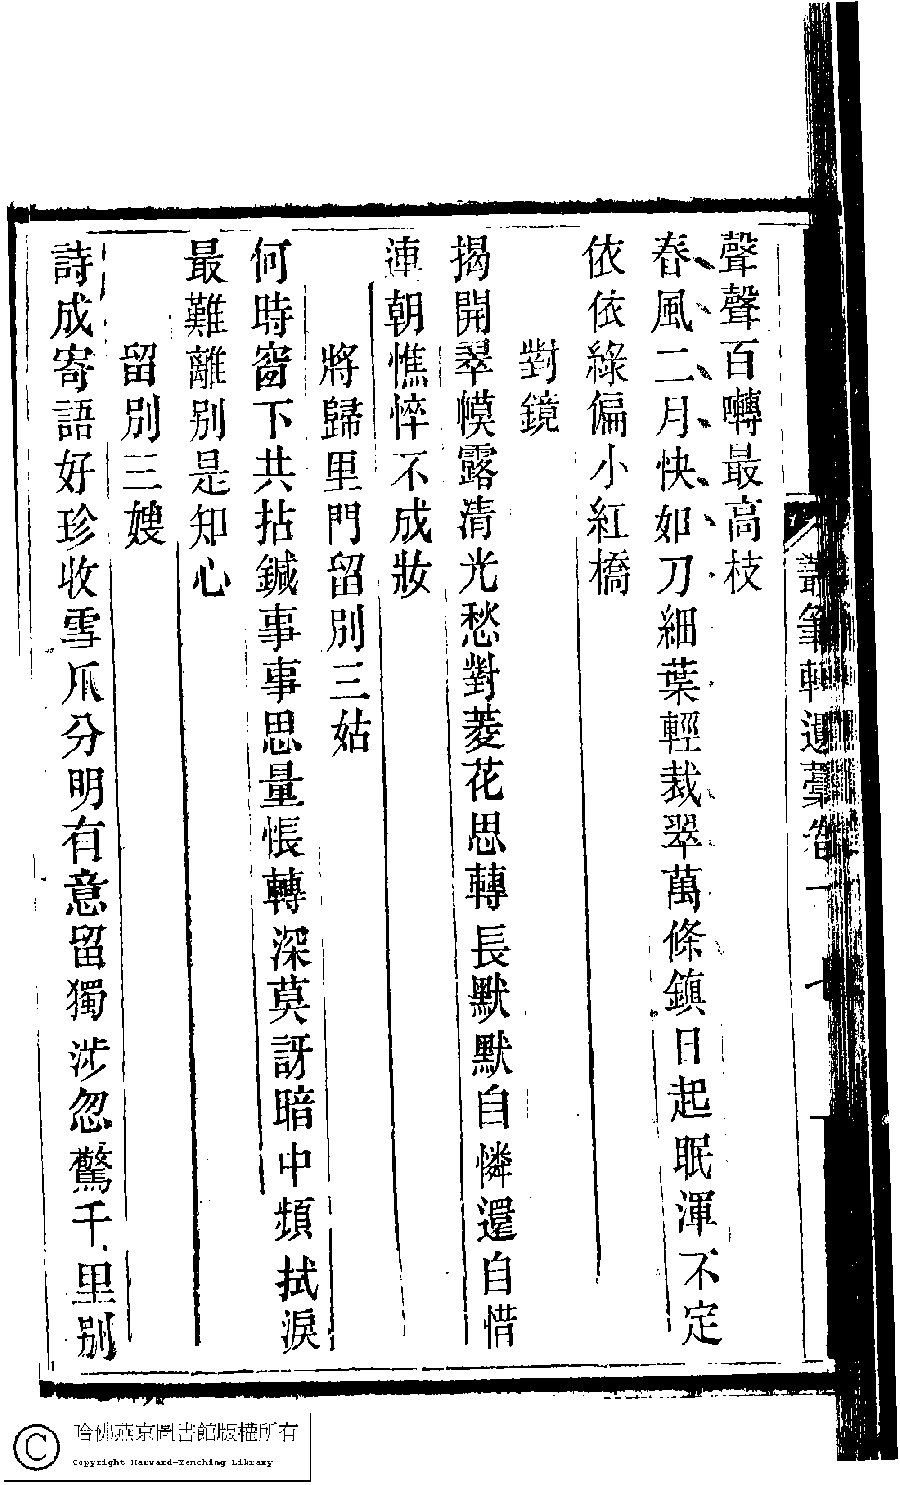 聲聲百囀最高枝
春風二月快如刀細葉輕裁翠萬條鎮日起眠渾不定
依依綠偏小紅橋
對鏡
揭開翠幙露清光愁對菱花思轉長默默自憐還自惜
連朝憔悴不成妝
將歸里門留別三姑
何時窗下共拈鍼事事思量悵轉深莫訝暗中頻拭淚
最難離別是知心
留別三嫂
詩成寄語好珍收雪爪分明有意留獨涉忽驚千里別
哈佛燕京圖書館版權所有
Copyright Harvard-Yenching Library